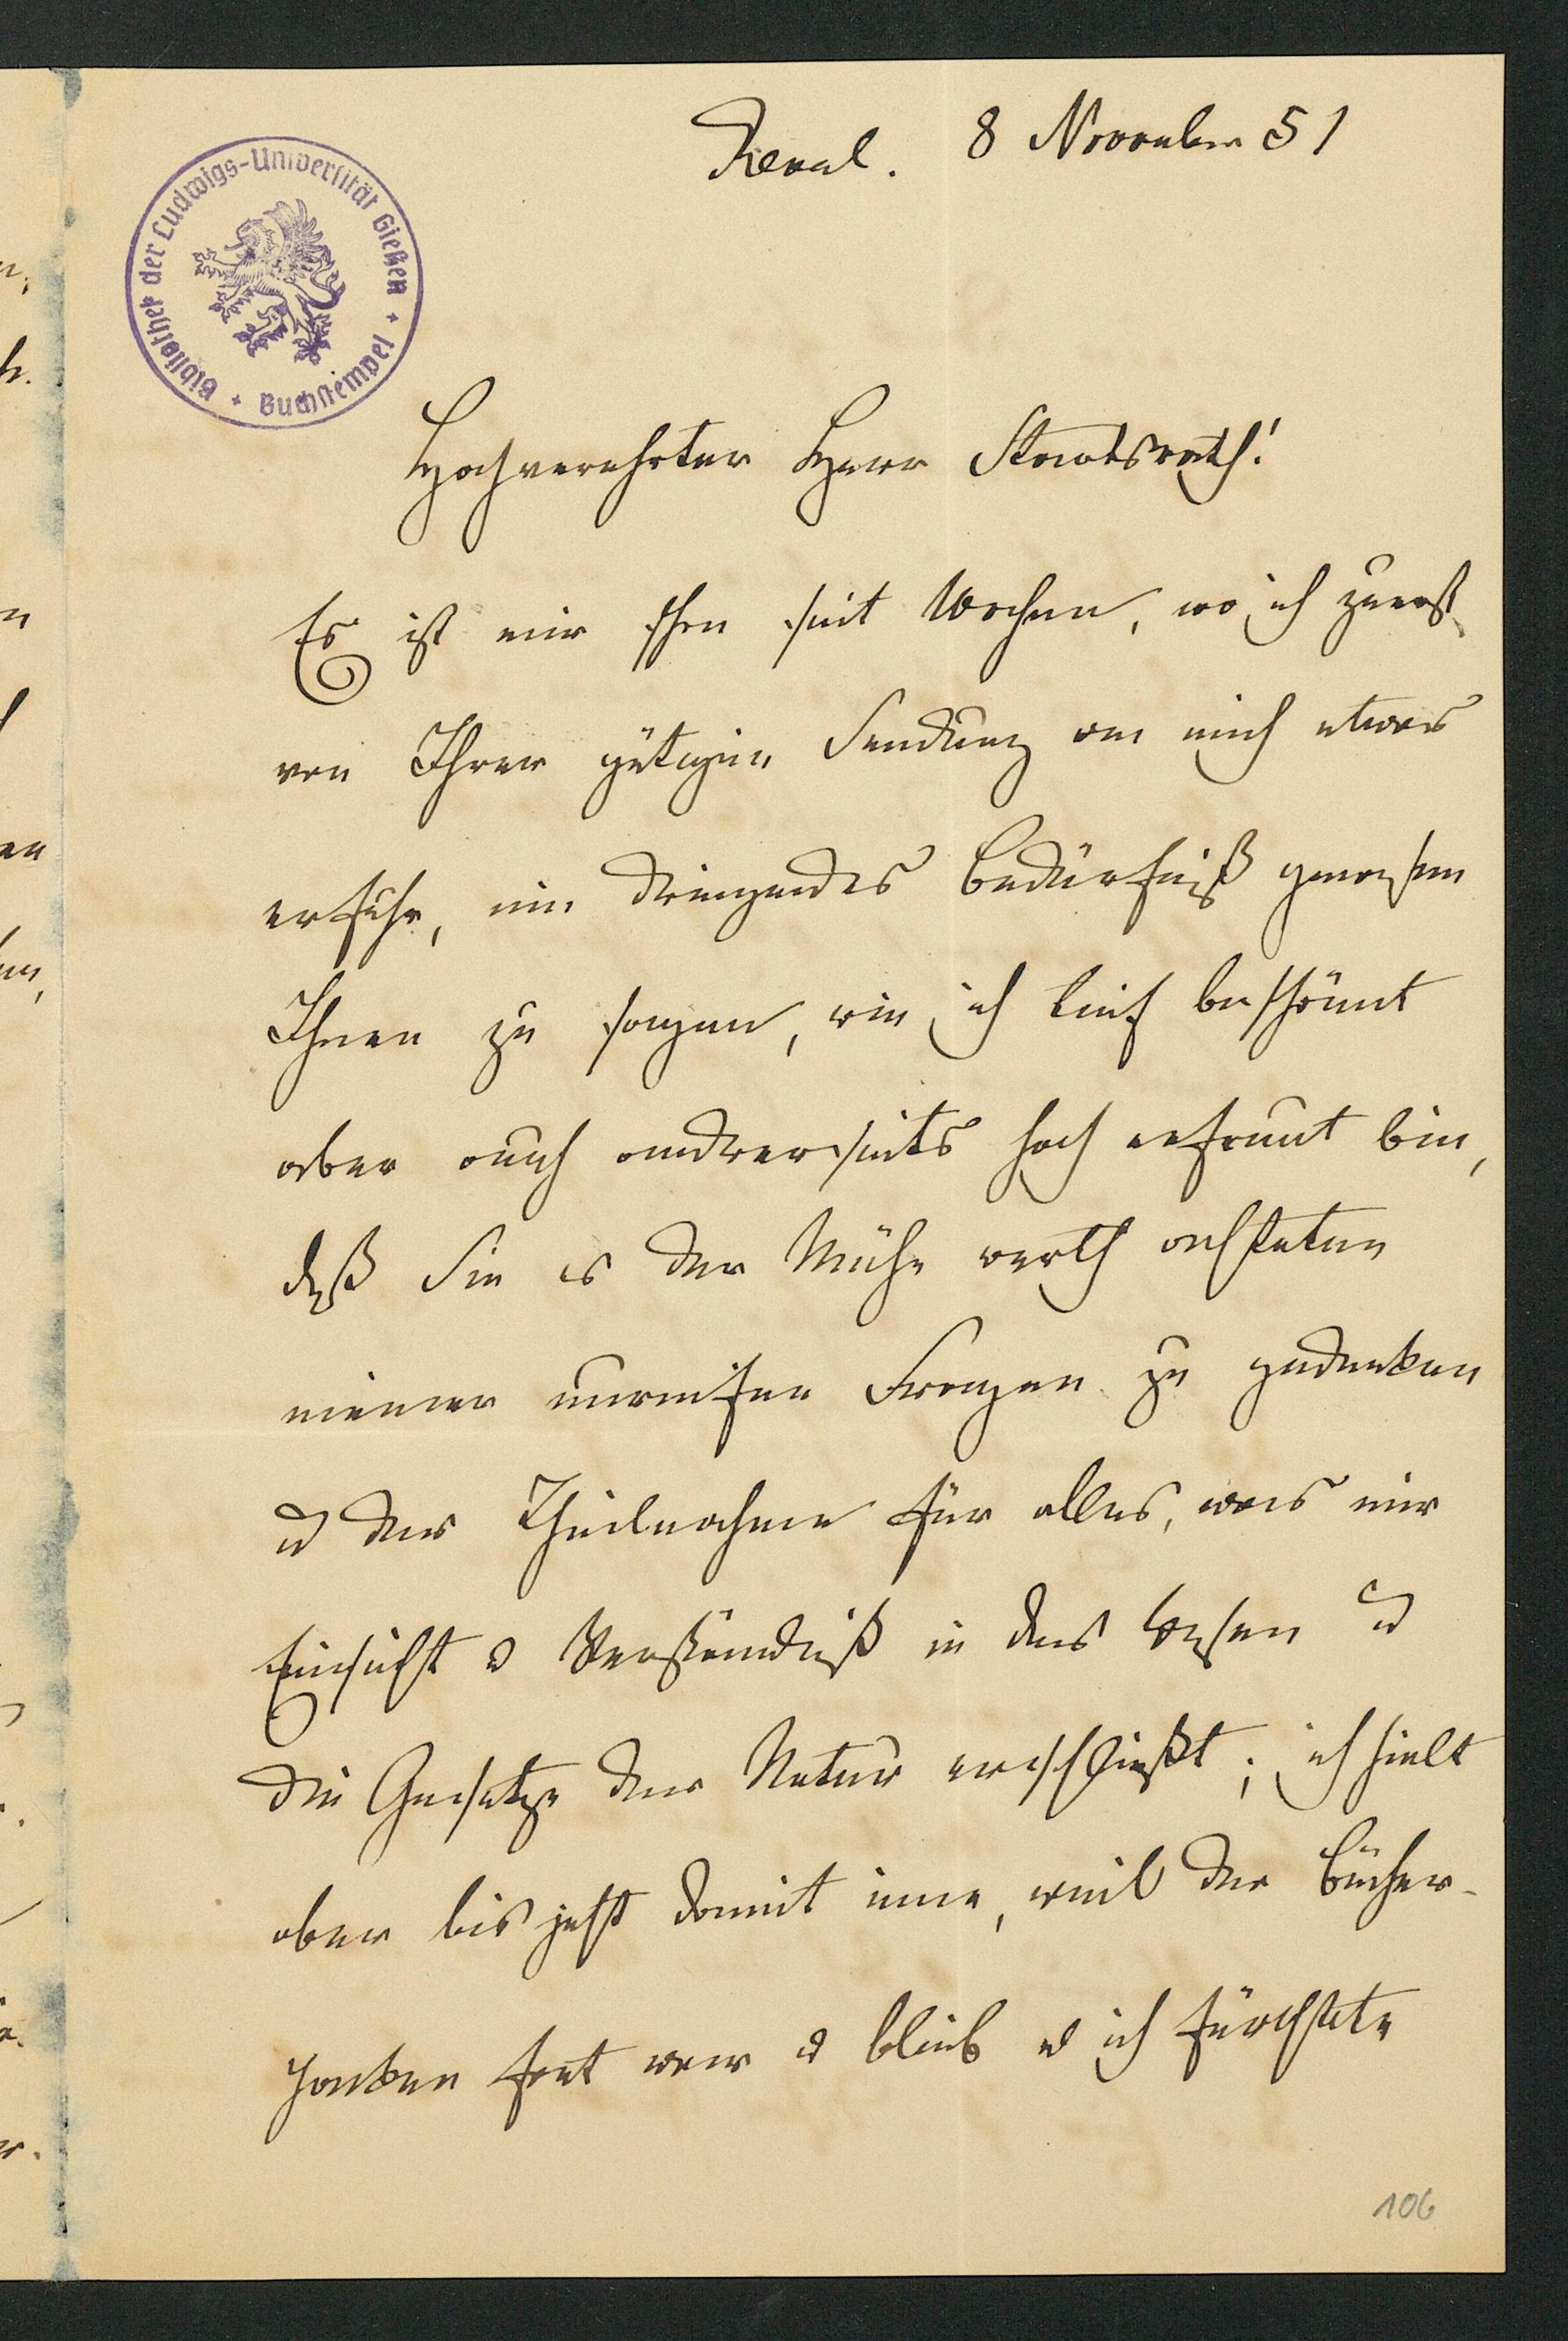 Reval. 8 November 51
Bibliothek der Ludwigs-Universität Gießen
Buchstempel
Hochverehrter Herr Staatsrath!
Es ist mir schon seit Wochen, wo ich zuerst
von Ihrer gütigen Sendung an mich etwas
erfuhr, ein dringendes Bedürfniß gewesen
Ihnen zu sagen, wie ich tief beschämt
aber auch andrerseits hoch erfreut bin,
daß Sie es der Mühe werth achteten
meiner unreifen Fragen zu gedenken
u der Theilnahme für alles, was mir
Einsicht u Verständniß in das Wesen u
die Gesetze der Natur erschließt; ich hielt
aber bis jetzt damit inne, weil der Bücher-
fort war u blieb u ich fürchtete
106